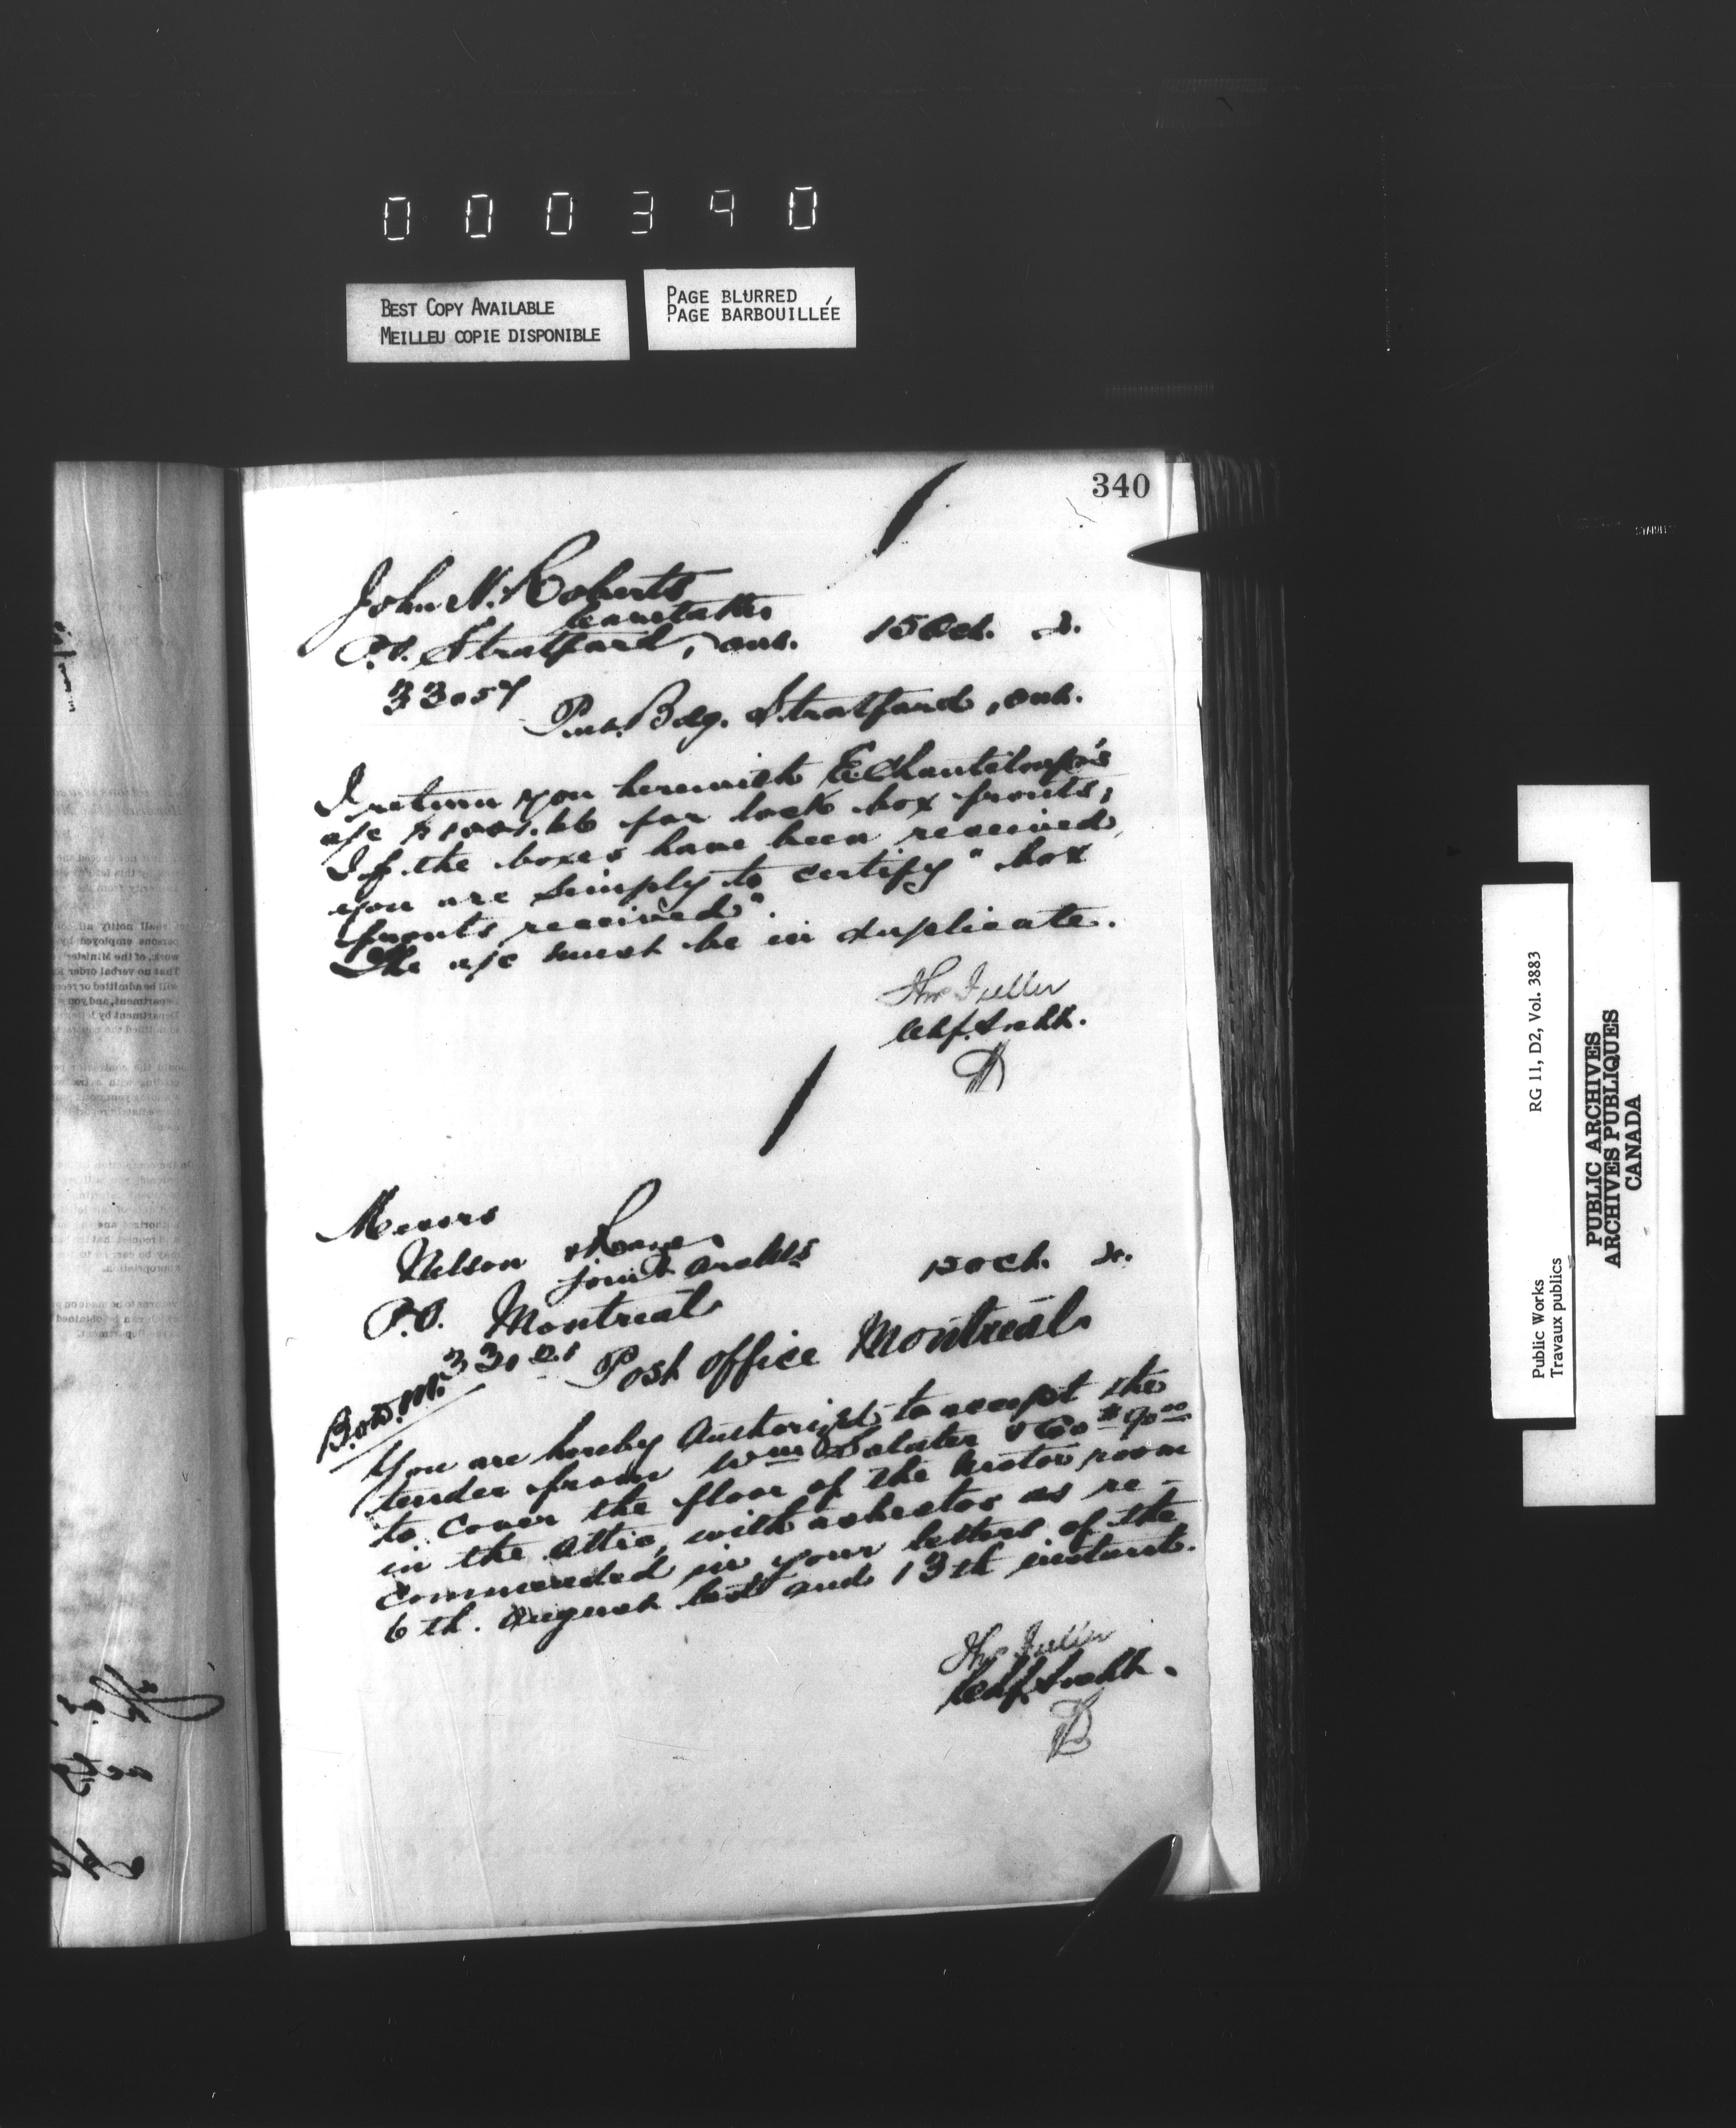 000340
BEST COPY AVAILABLE
MEILLEU COPIE DISPONIBLE
PAGE BLURRED
PAGE BARBOUILLÉE
340
John N. Roberts
Caretaker
P.O. Stratford, Ont. 15 Oct. 2.
33057
Pub. Bdg. Stratford, Ont.
I return you herewith E. Chanteloup's
a/c for lock box fronts;
If the boxes have been received,
you are simply to certify "box
fronts received".
The a/c must be in duplicate.
Thos Fuller
Chf. Archt.
Messrs
Nelson &
joint Archts
15 Oct. 2.
P.O. Montreal
Post Office Montreal
You are hereby Authorized to accept the
tender from Wm & Co $90.00
to cover the floor of the Motor room
in the attic, with asbestos as re-
commended in your letters of the
6th. August last and 13th instant.
Thos Fuller
Chf. Archt.
Public Works
Travaux publics
RG 11, D2, Vol. 3883
PUBLIC ARCHIVES
ARCHIVES PUBLIQUES
CANADA